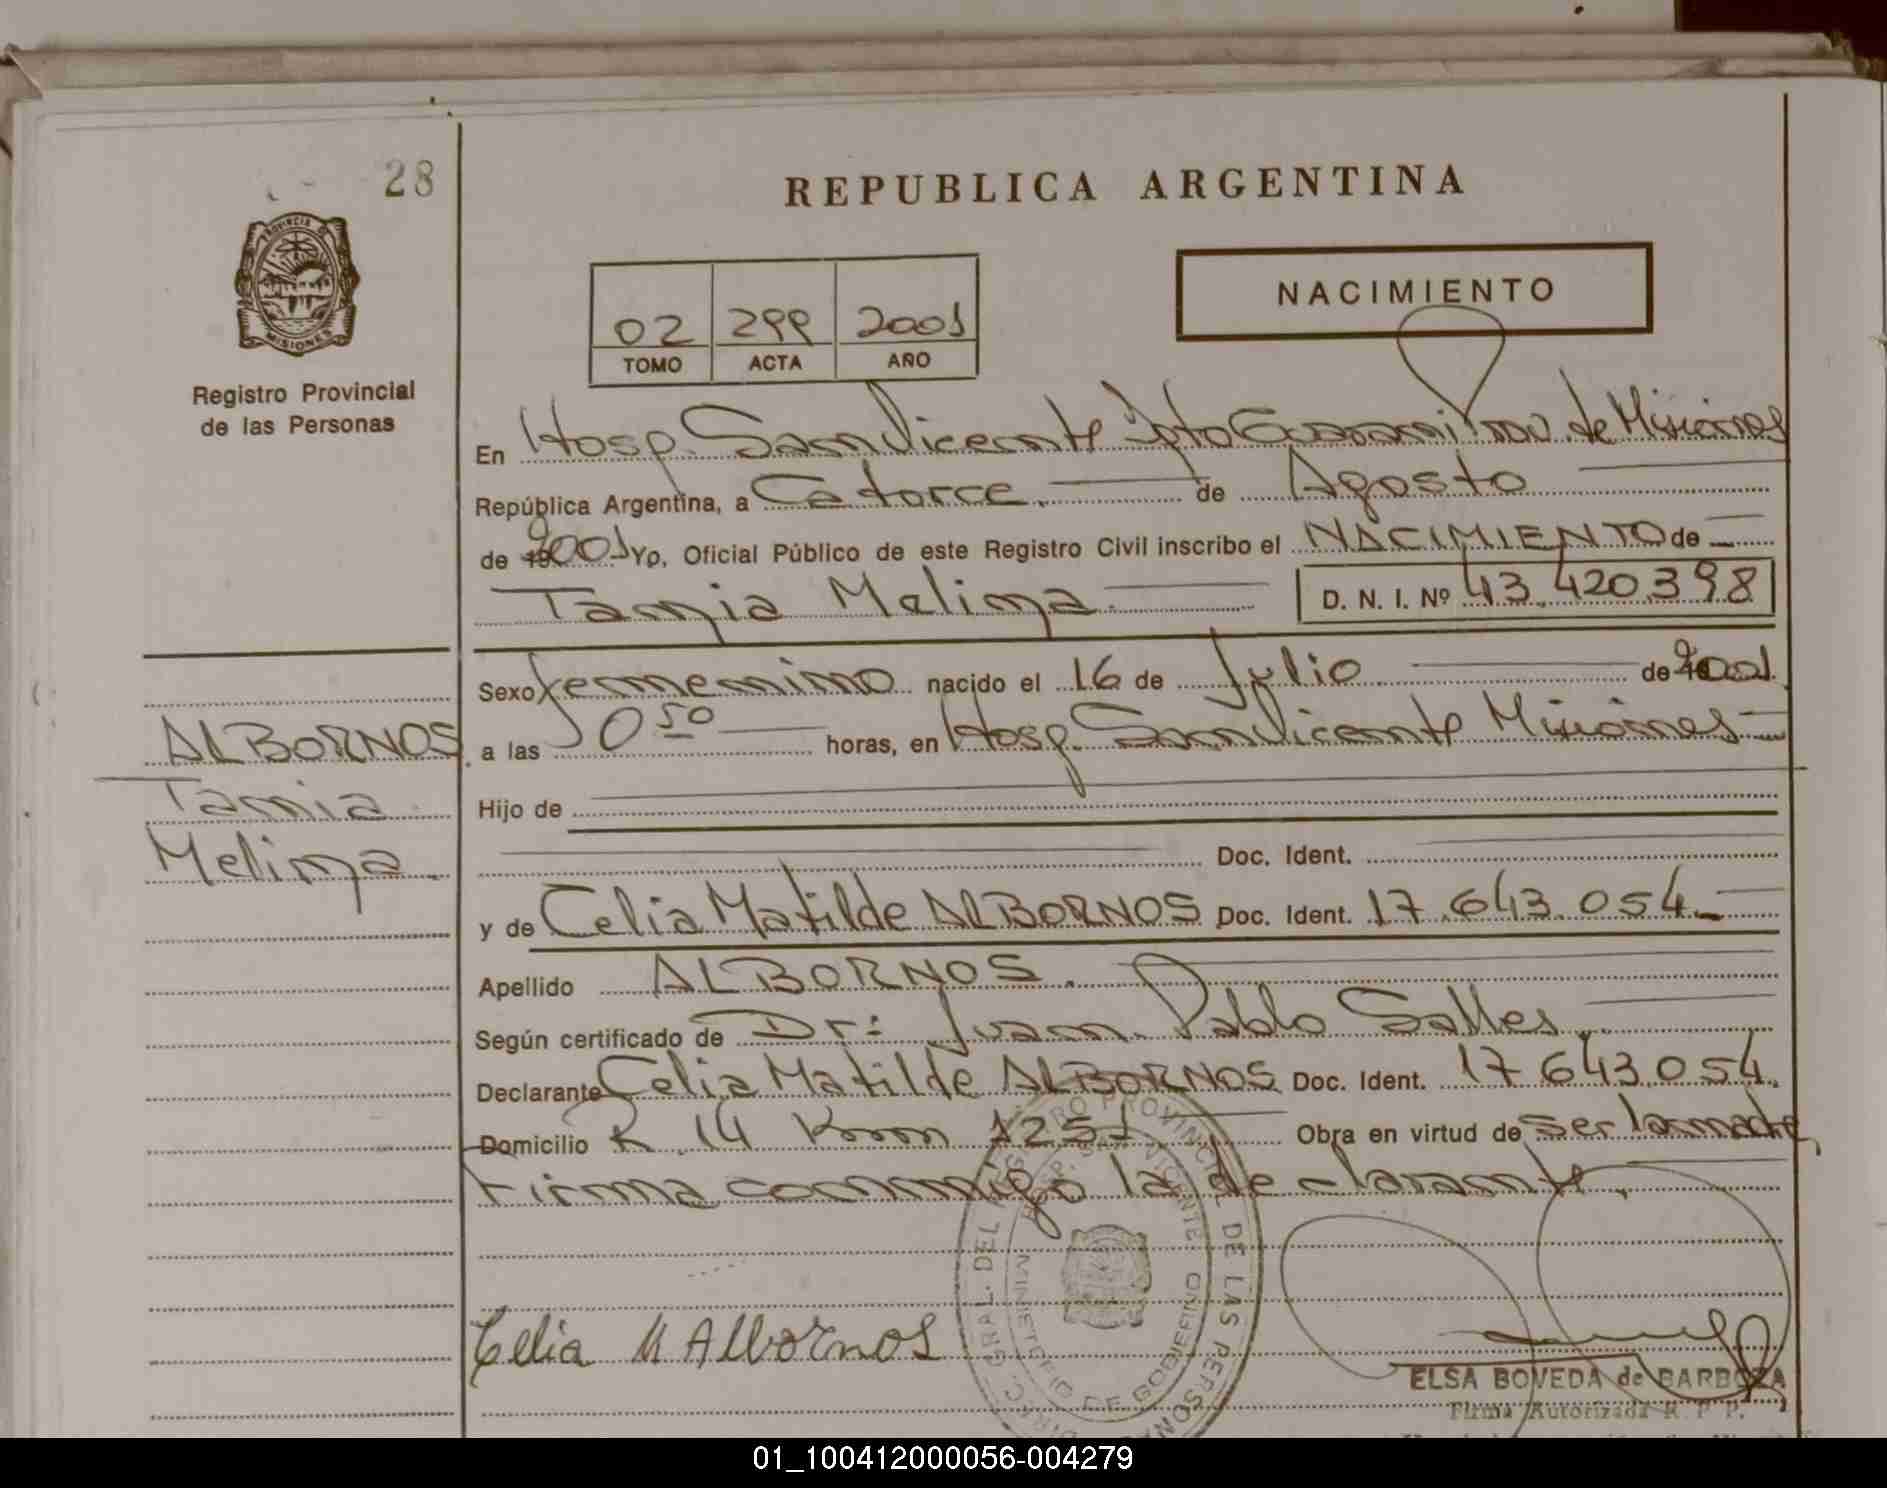 28
REPUBLICA ARGENTINA
PROVINCIA DE
MISIONES
NACIMIENTO
02 299 2001
TOMO ACTA AÑO
Registro Provincial
de las Personas
En Hosp. San Vicente Dpto Guarani Prov. de Misiones
República Argentina, a Catorce. de Agosto
de 2001 Yo, Oficial Público de este Registro Civil inscribo el NACIMIENTO de
Tania Melina. D. N. I. Nº 43.420.398
Sexo femenino nacido el 16 de Julio de 2001.
ALBORNOS a las 0 50 horas, en Hosp. San Vicente Misiones
Tania Hijo de
Melina. Doc. Ident.
y de Celia Matilde ALBORNOS Doc. Ident. 17.643.054
Apellido ALBORNOS.
Según certificado de Dr: Juan Pablo
Declarante Celia Matilde ALBORNOS Doc. Ident. 17.643.054.
Domicilio R. 14 Km 1251 Obra en virtud de ser la madre,
Firma conmigo la declarante.
DIRECC. GRAL. DEL REGISTRO PROVINCIAL DE LAS PERSONAS
HOSP. SAN VICENTE
MINISTERIO DE GOBIERNO
Celia M Albornos
ELSA BOVEDA de BARBOZA
Firma Autorizada R. P. P.
01_100412000056-004279